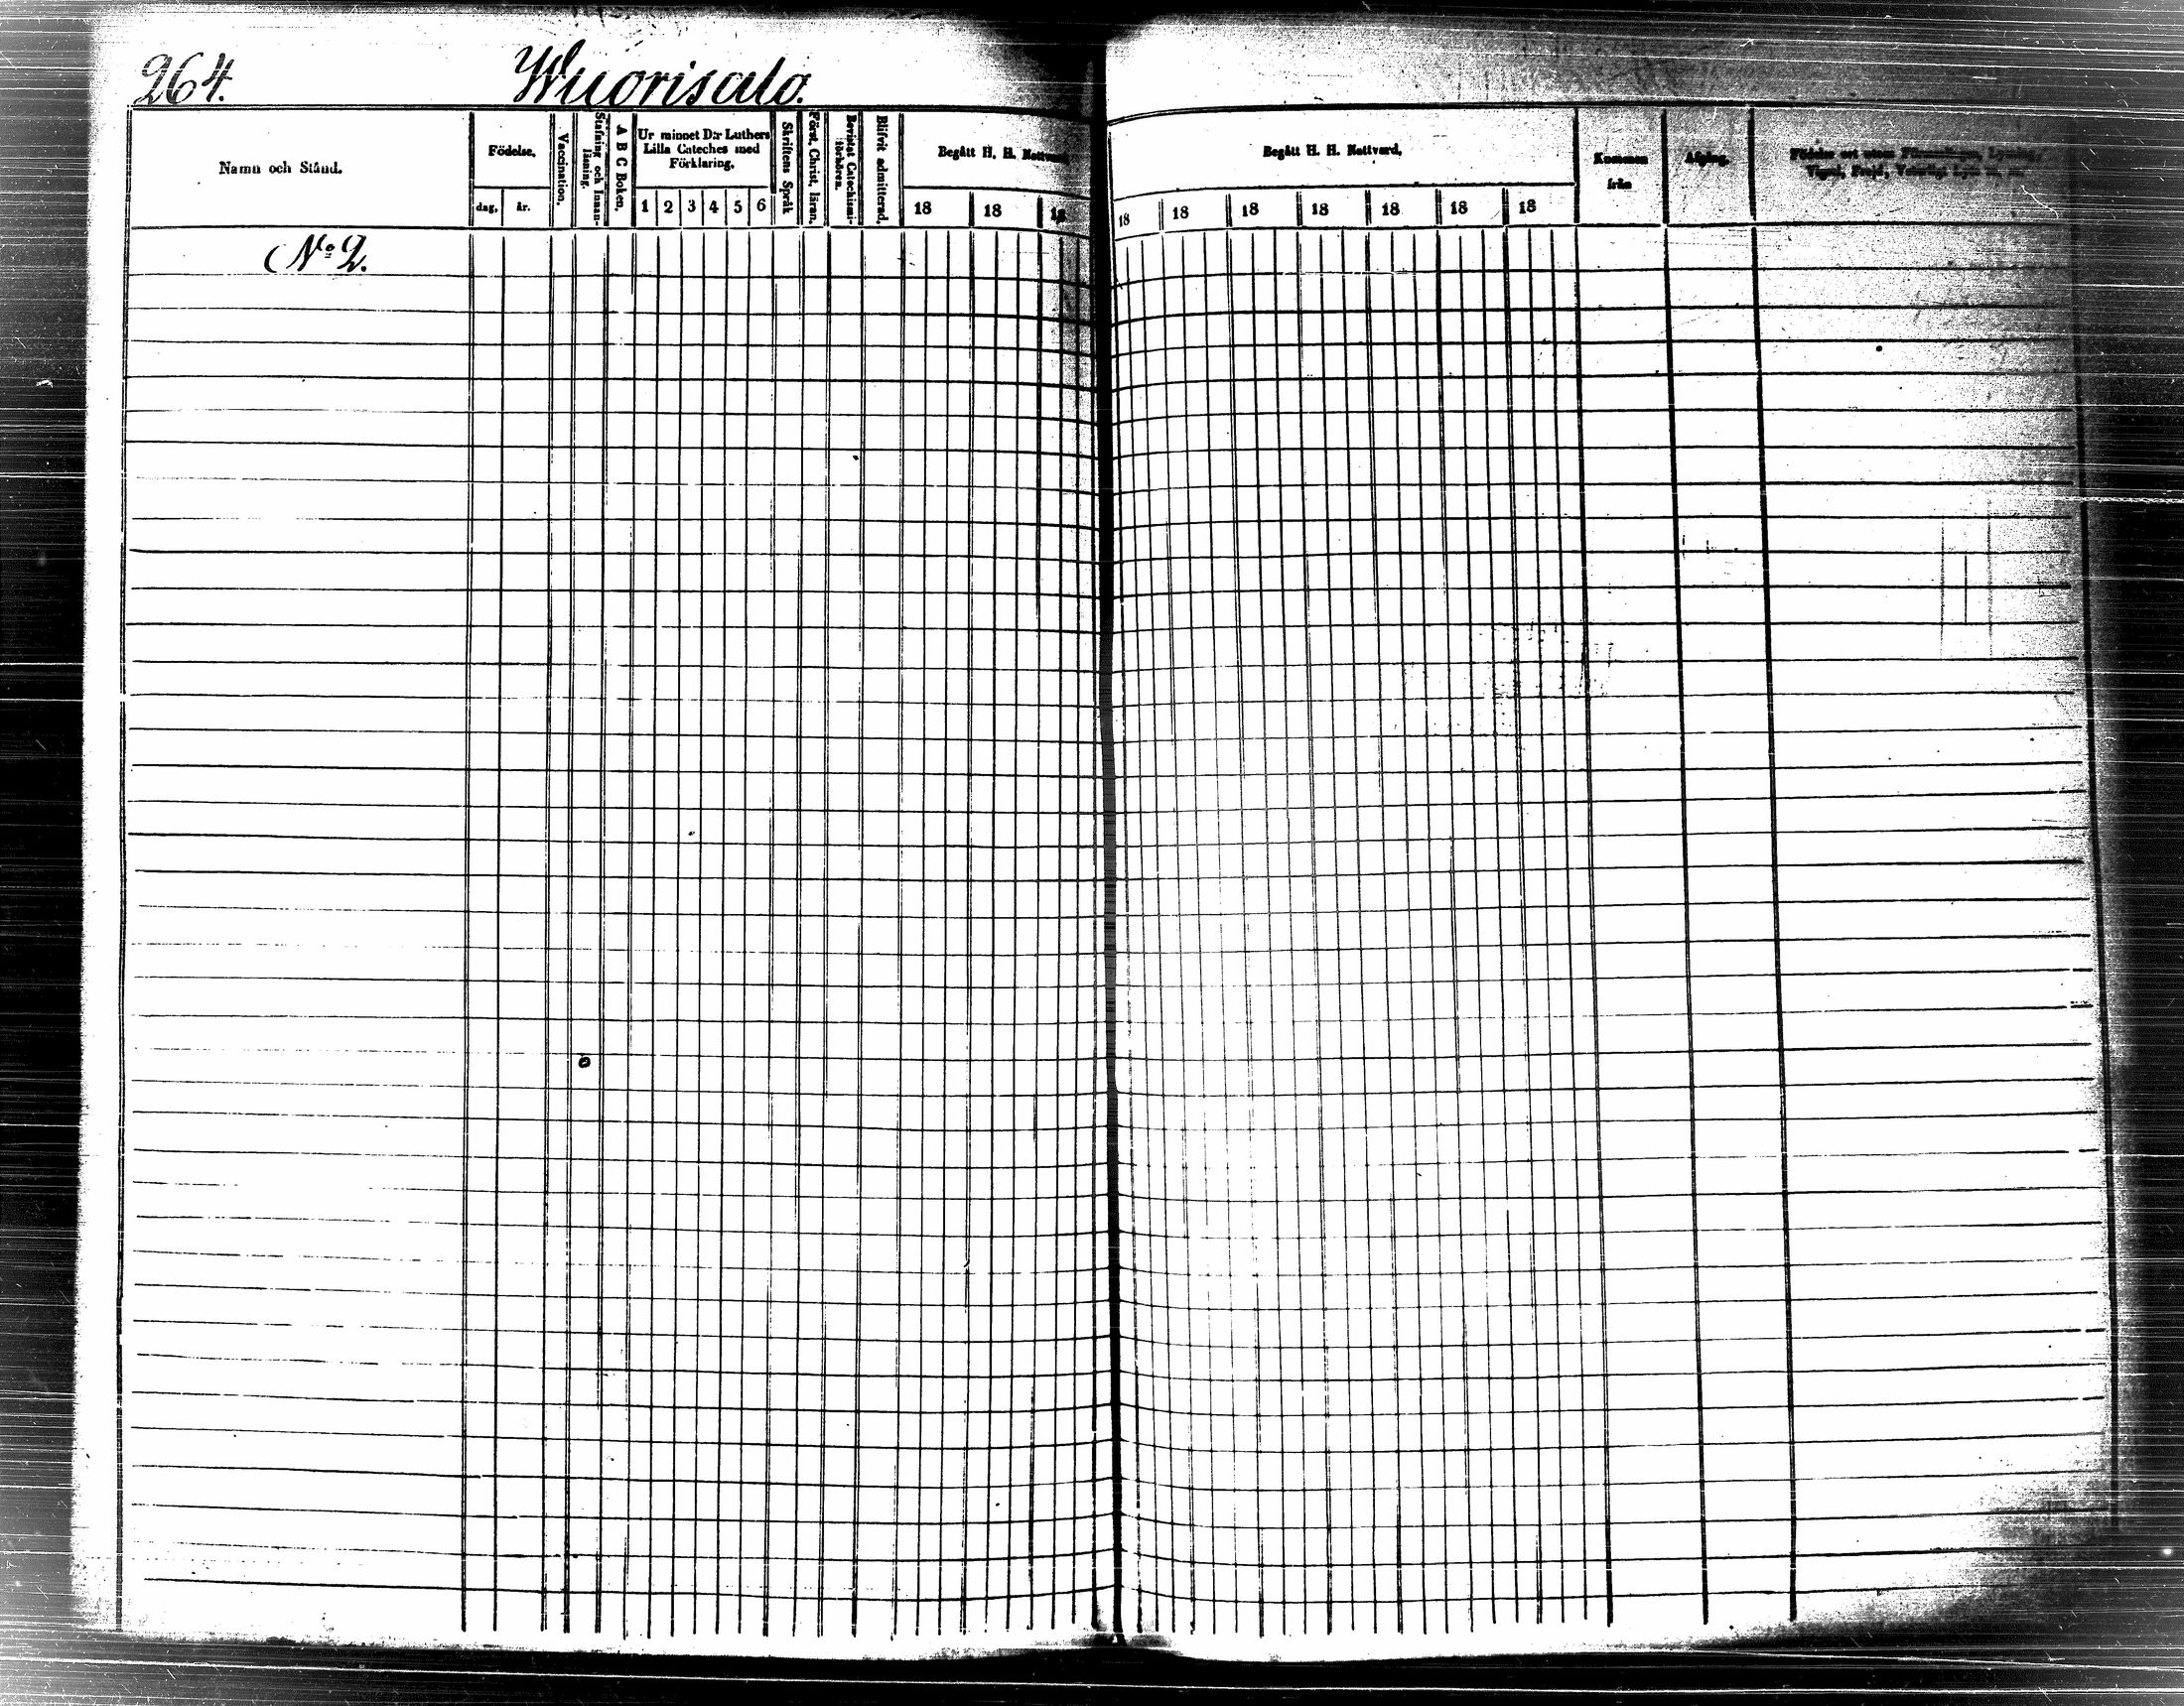 264. Wuorisalo.
Namn och Stånd.
Födelse.
dag. år.
Vaccination.
Stafning och Innan-
läsning.
A B C Boken.
Ur minnet D:r Luthers
Lilla Cateches med
Förklaring.
1 2 3 4 5 6
Skriftens Språk
Först. Christ. läran.
Bevistat Catechismi-
förhören.
Blifvit admitterad.
Begått H. H. Nattvard.
18 18 18
Begått H. H. Nattvard.
18 18 18 18 18 18 18
Kommen
från
Afgång.
No 2.